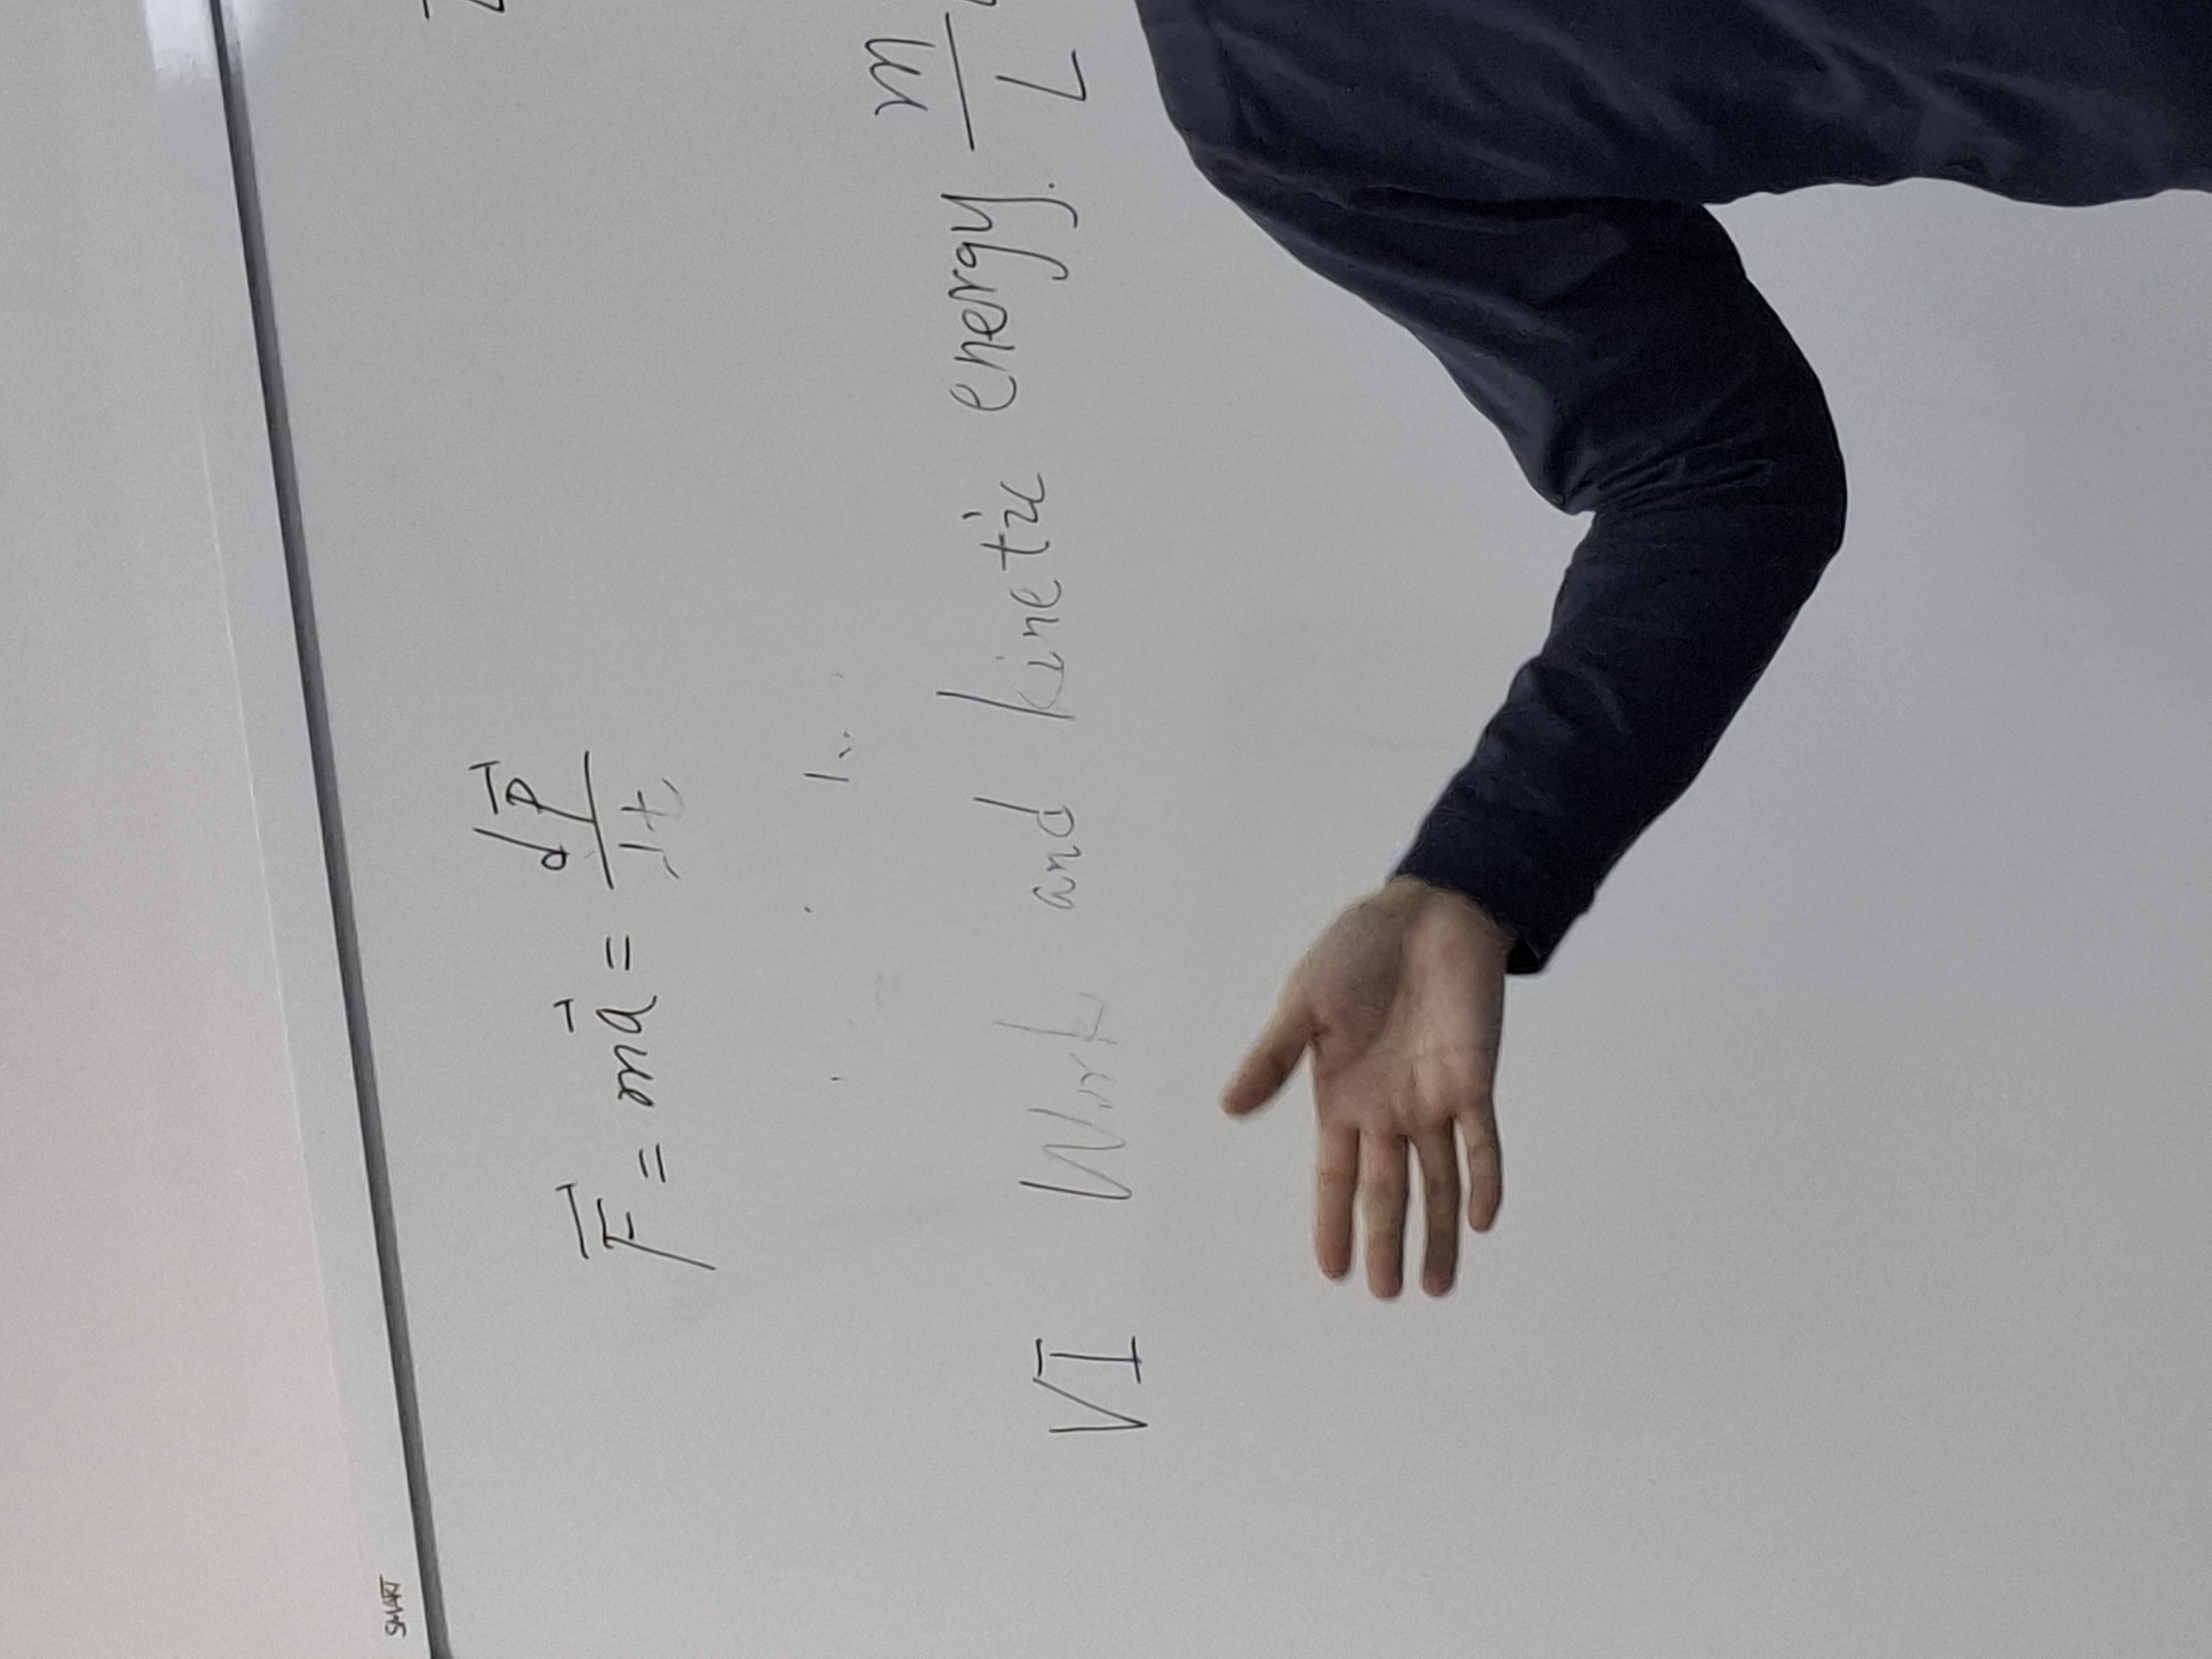 SMART
$\vec{F} = m\vec{a} = \frac{d\vec{p}}{dt}$
VI Work and kinetic energy. $\frac{m}{L}$